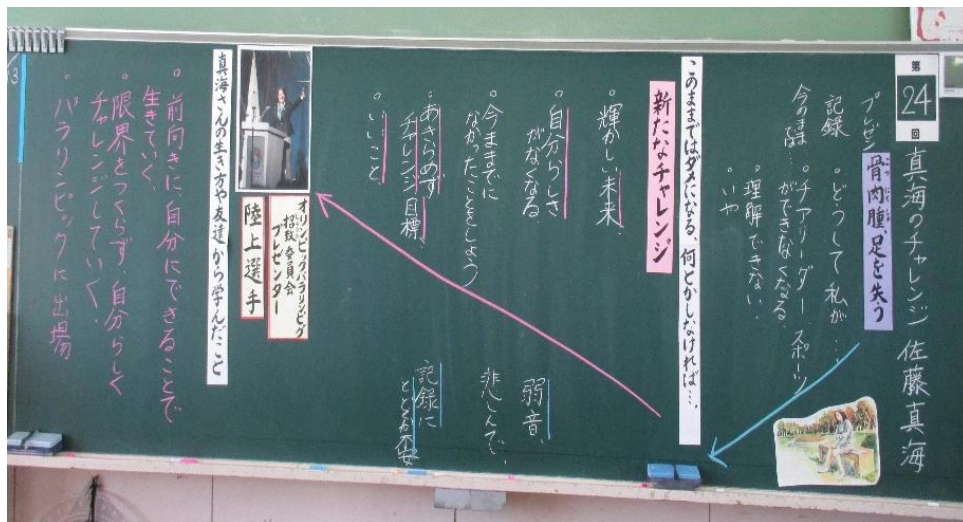 第24回
真海のチャレンジ 佐藤真海
骨肉腫、足を失う
プレゼン
記録
今の話…
。どうして私が…
。チアリーダー スポーツ
ができなくなる
。理解できない
。いや
このままではダメになる、何とかしなければ…。
新たなチャレンジ
。輝かしい未来、
。自分らしさ
がなくなる
。今までに
なかったことをしよう
。あきらめず
チャレンジ目標、
。いいこと
弱音、
悲しんで、
記録に
オリンピックパラリンピック
招致委員会
プレゼンター
陸上選手
真海さんの生き方や友達から学んだこと
。前向きに自分にできることで
生きていく、
。限界をつくらず、自分らしく
チャレンジしていく、
。パラリンピックに出場